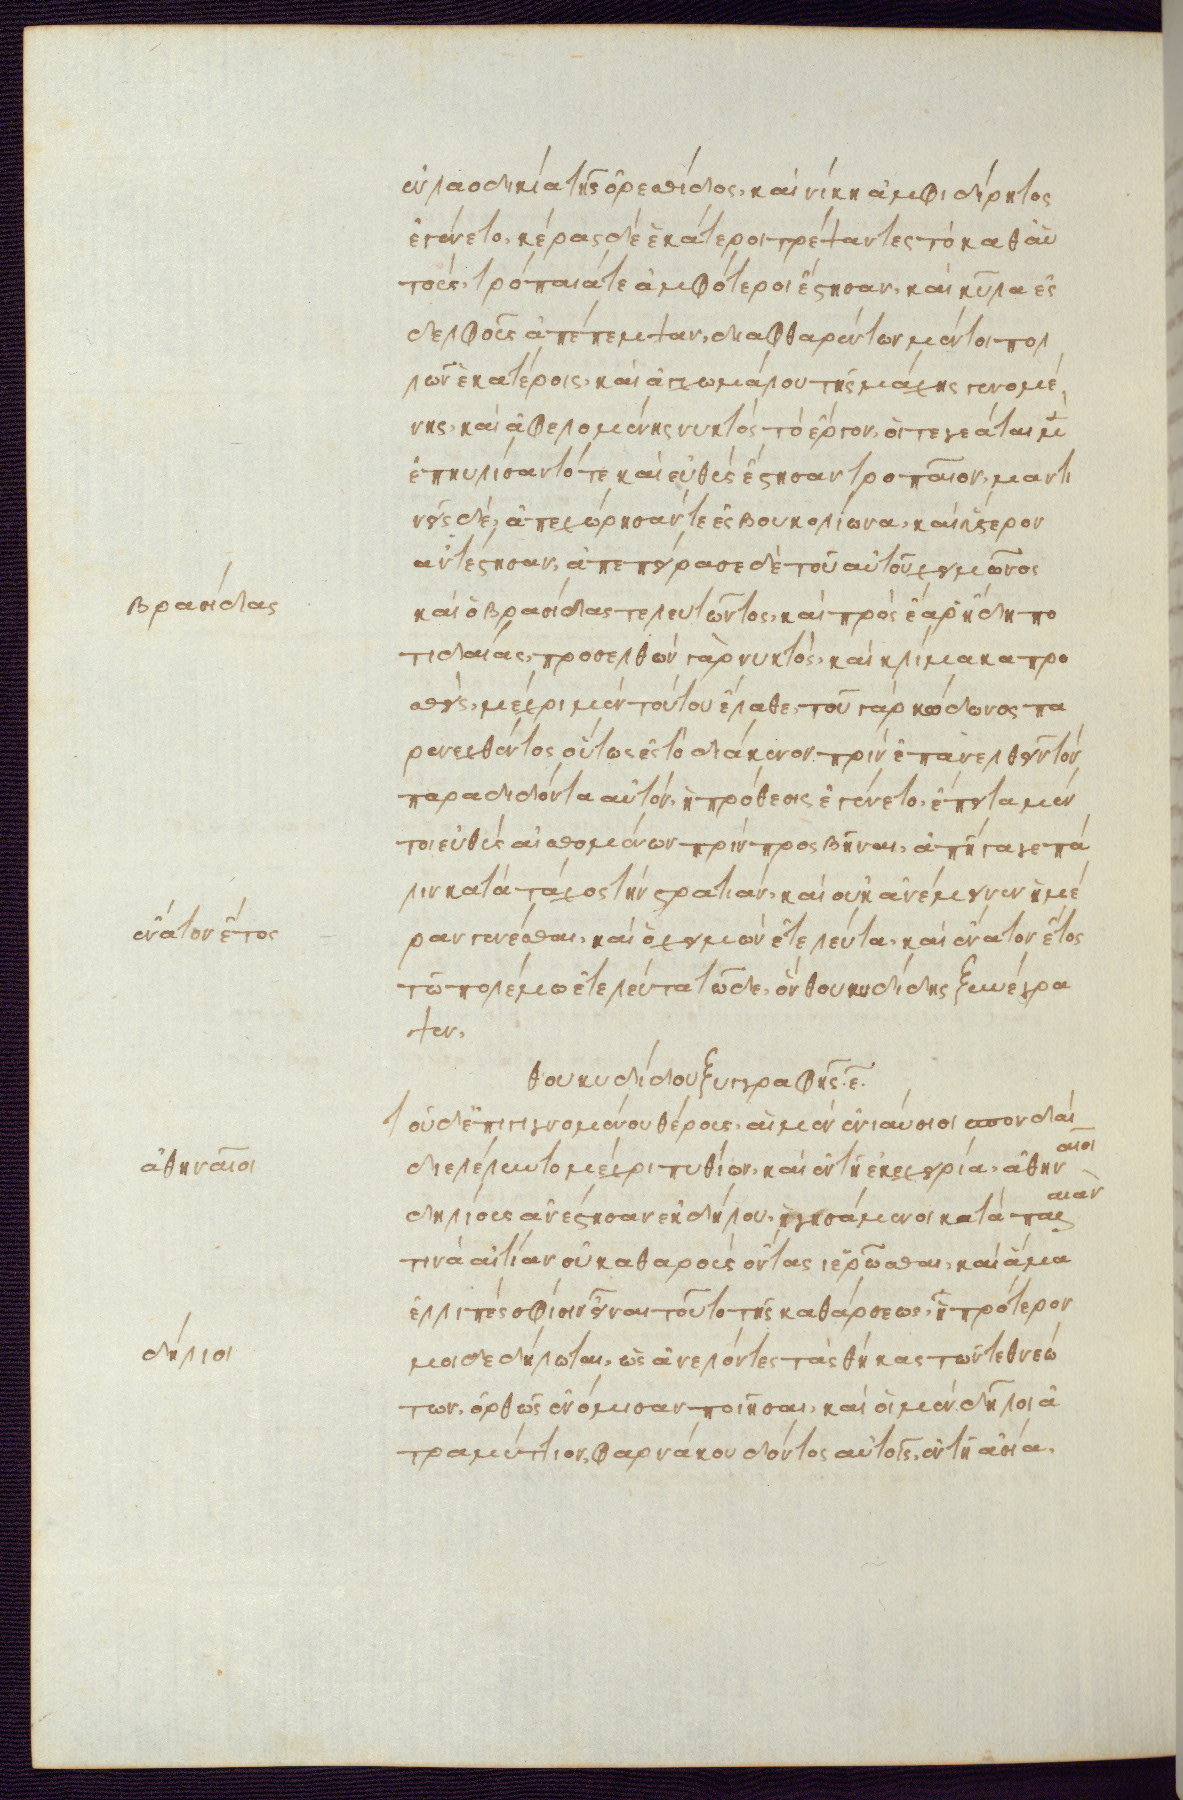 ἐν λαοδικία τῆς ὀρεσθίδος, καὶ νίκη ἀμφιδήριτος
ἐγένετο, κέρας δὲ ἑκάτεροι τρέψαντες τὸ καθ' αὑ
τοὺς, τρόπαιά τε ἀμφότεροι ἔστησαν, καὶ σκῦλα ἐς
δελφοὺς ἀπέπεμψαν, διαφθαρέντων μέντοι πολ
λῶν ἑκατέροις, καὶ ἀγχωμάλου τῆς μάχης γενομέ
νης, καὶ ἀφελομένης νυκτὸς τὸ ἔργον, οἱ τεγεᾶται μὲν
ἐπηυλίσαντό τε καὶ εὐθὺς ἔστησαν τροπαῖον, μαντι
νεῖς δὲ, ἀπεχώρησάν τε ἐς βουκολίωνα, καὶ ὕστερον
ἀντέστησαν, ἀπεπείρασε δὲ τοῦ αὐτοῦ χειμῶνος
βρασίδας
καὶ ὁ βρασίδας τελευτῶντος, καὶ πρὸς ἔαρ ἤδη πο
τιδαίας, προσελθὼν γὰρ νυκτὸς, καὶ κλίμακα προ
σθεὶς, μέχρι μὲν τούτου ἔλαθε, τοῦ γὰρ κώδωνος πα
ρενεχθέντος οὕτως ἐς τὸ διάκενον πρὶν ἐπανελθεῖν τὸν
παραδιδόντα αὐτὸν, ἡ πρόθεσις ἐγένετο, ἔπειτα μέν
τοι εὐθὺς αἰσθομένων πρὶν προσβῆναι, ἀπήγαγε πά
λιν κατὰ τάχος τὴν στρατιὰν, καὶ οὐκ ἀνέμεινεν ἡμέ
ἔνατον ἔτος
ραν γενέσθαι, καὶ ὁ χειμὼν ἐτελεύτα, καὶ ἔνατον ἔτος
τῶ πολέμω ἐτελεύτα τῶδε, ὃν θουκυδίδης ξυνέγρα
ψεν,
θουκυδίδου ξυγγραφῆς. ε.
τοῦ δ' ἐπιγιγνομένου θέρους, αἱ μὲν ἐνιαύσιοι σπονδαὶ
ἀθηναῖοι
διελέλυντο μέχρι πυθίων, καὶ ἐν τῆ ἐκεχειρία, ἀθηναῖοι
δηλίους ἀνέστησαν ἐκ δήλου, ἡγησάμενοι κατὰ παλαιάν
τινα αἰτίαν οὐ καθαροὺς ὄντας ἱερῶσθαι, καὶ ἅμα
ἐλλιπὲς σφίσιν εἶναι τοῦτο τῆς καθάρσεως, ἧ πρότερον
δήλιοι
μοι δεδήλωται, ὡς ἀνελόντες τὰς θήκας τῶν τεθνεώ
των, ὀρθῶς ἐνόμισαν ποιῆσαι, καὶ οἱ μὲν δήλιοι ἀ
τραμύττιον, φαρνάκου δόντος αὐτοῖς, ἐν τῆ ἀσία,